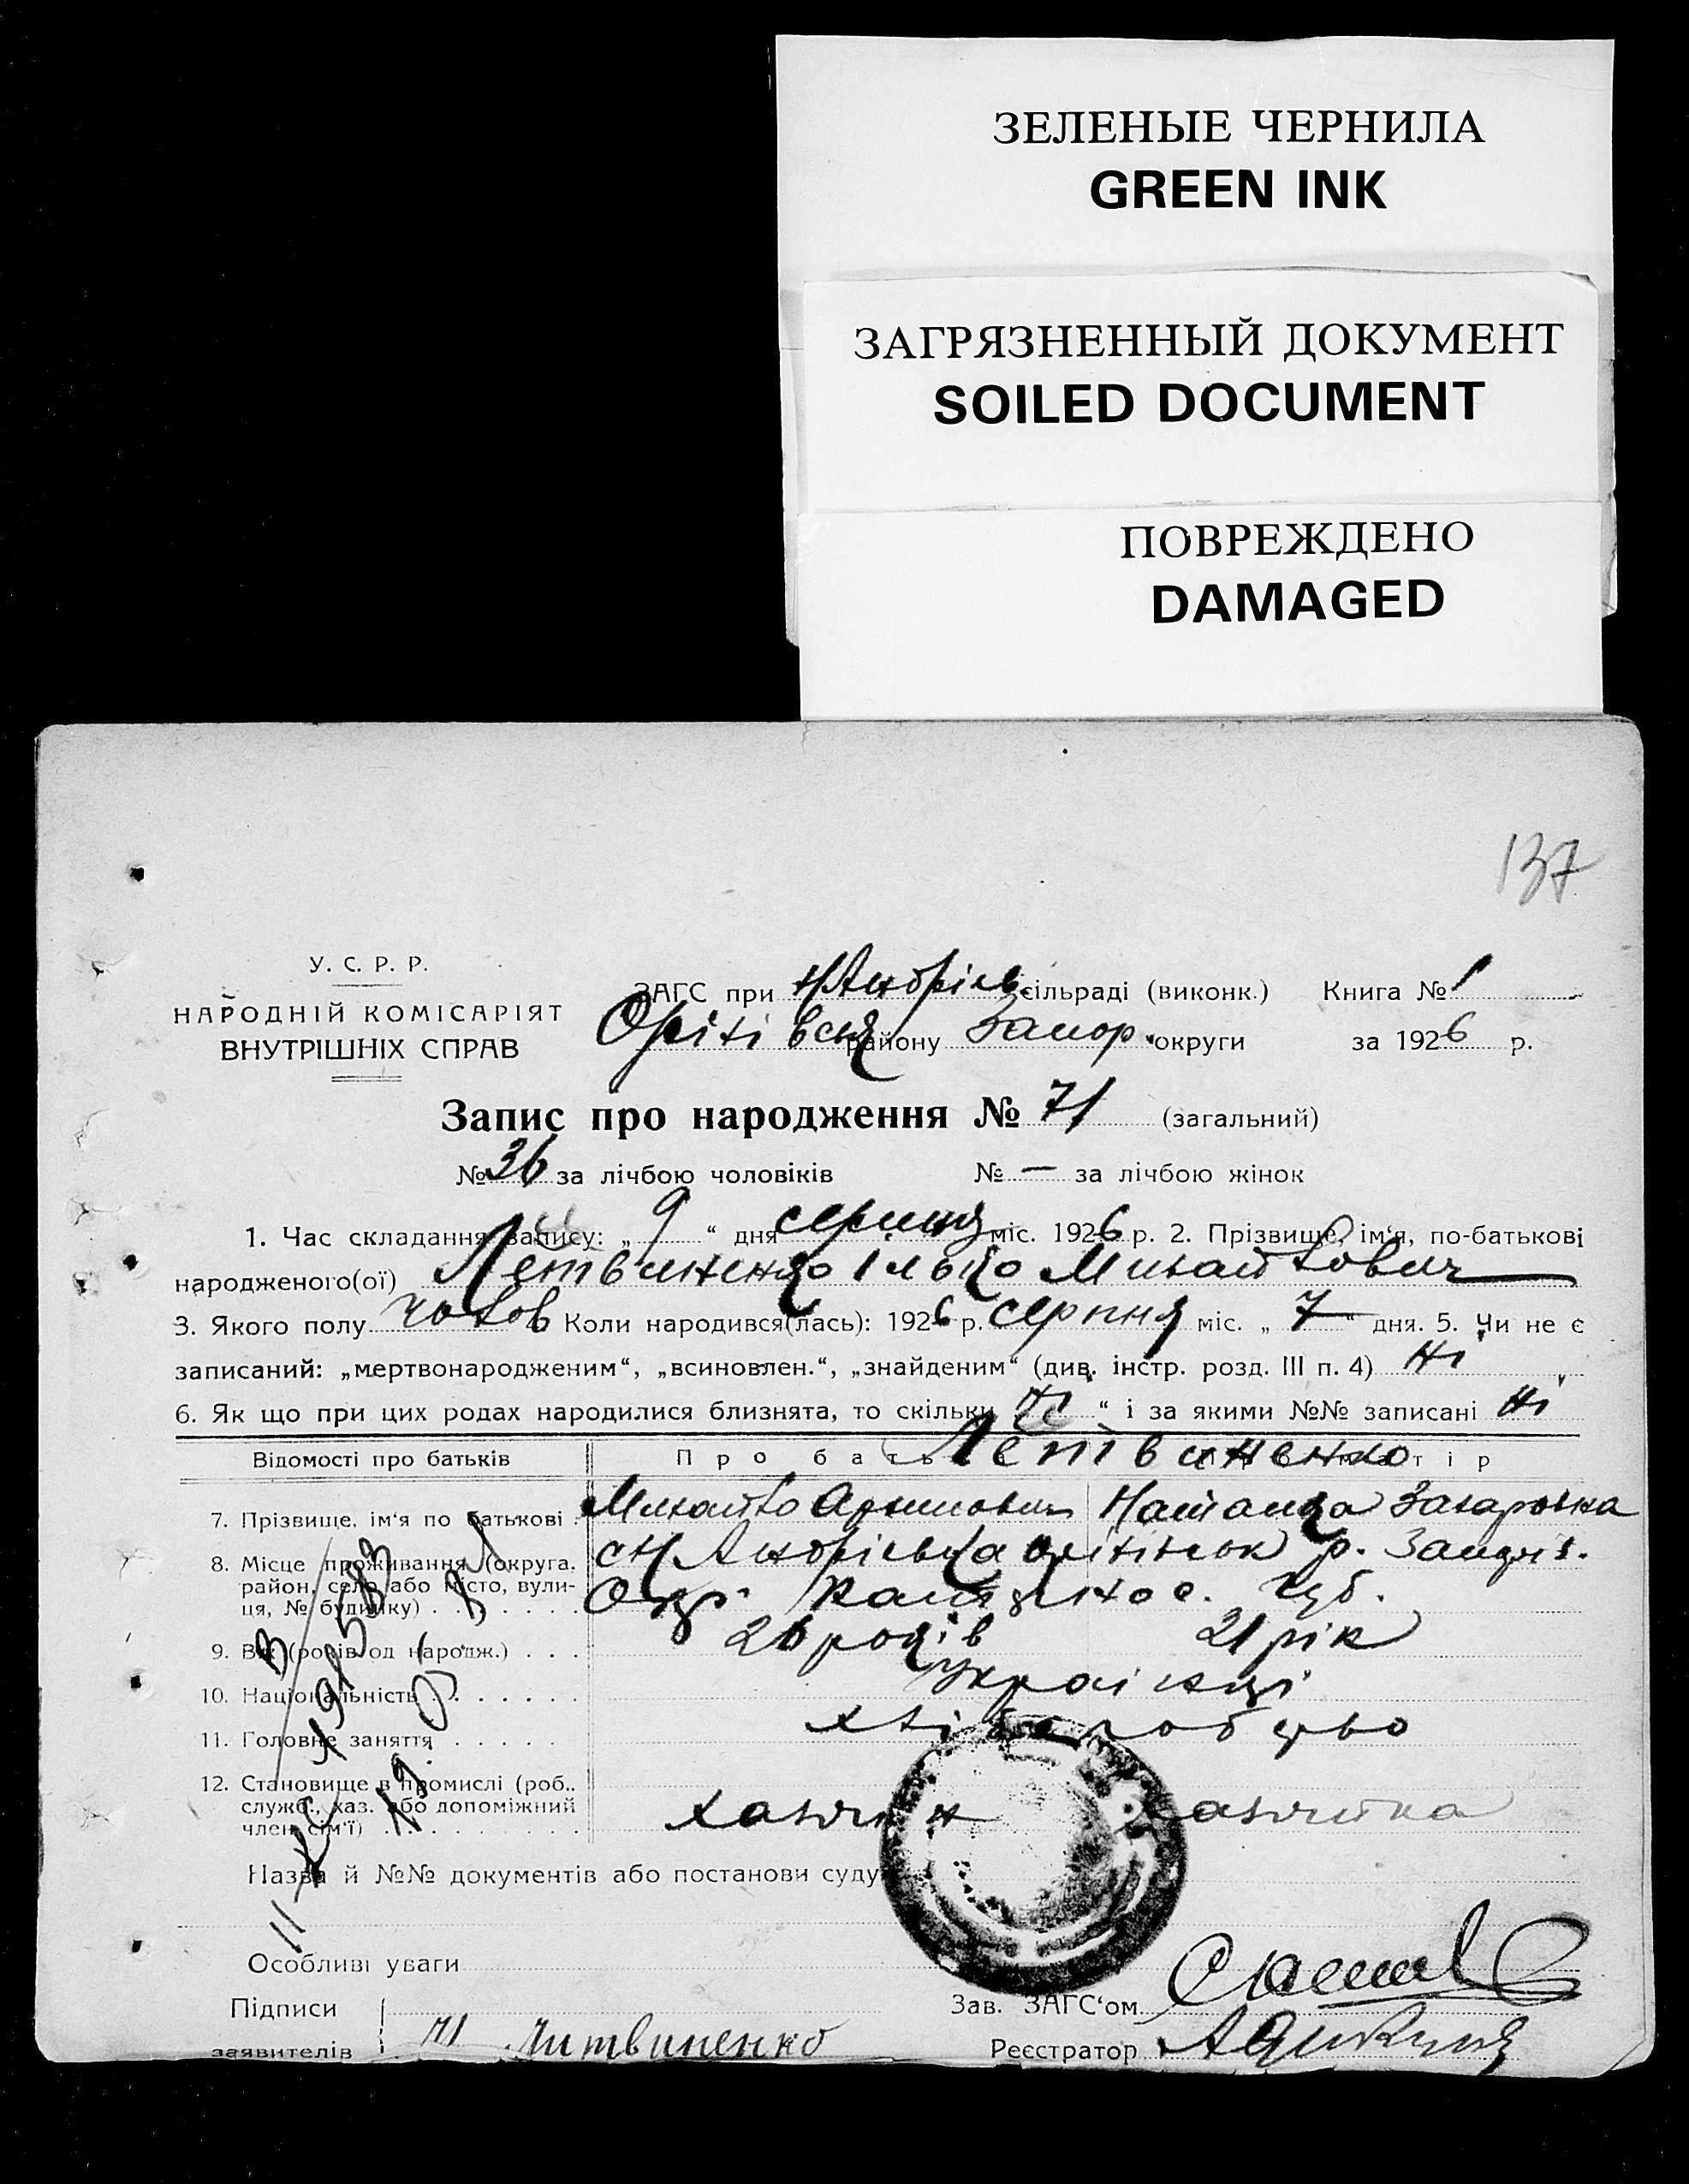 ЗЕЛЕНЫЕ ЧЕРНИЛА
GREEN INK
ЗАГРЯЗНЕННЫЙ ДОКУМЕНТ
SOILED DOCUMENT
ПОВРЕЖДЕНО
DAMAGED
137
У. С. Р. Р.
НАРОДНІЙ КОМІСАРІЯТ
ВНУТРІШНІХ СПРАВ
ЗАГС при Н/Андріїв. сільраді (виконк.) Книга № 1
району Запор. округи за 1926 р.
Запис про народження № 71 (загальний)
№ 36 за лічбою чоловіків № — за лічбою жінок
1. Час складання запису: „ 9 “ дня серпня міс. 1926 р. 2. Прізвище, ім'я, по-батькові
народженого(ої) Летвиненко Ілько Михайлович
3. Якого полу чолов Коли народився(лась): 1926 р. серпня міс. „ 7 “ дня. 5. Чи не є
записаний: „мертвонародженим“, „всиновлен.“, „знайденим“ (див. інстр. розд. III п. 4) Ні
6. Як що при цих родах народилися близнята, то скільки „ Ні “ і за якими №№ записані Ні
Відомості про батьків Летвиненко
7. Прізвище, ім'я по батькові . Михайло Наталка Захаровна
8. Місце проживання (округа, с Н/Андріївка р.
район, село або місто, вули-
ця, № будинку) . . . . . . . Окр.
9. Вік (років од народж.) . . . 26 років 21 рік
10. Національність . . . . . . . Українці
11. Головне заняття . . . . . хліборобство
12. Становище в промислі (роб.,
служб., хаз. або допоміжний
член сім'ї) . . . . . . . . . хазяїн хазяйка
Назва й №№ документів або постанови суду
Особливі уваги
Підписи Зав. ЗАГС'ом
заявителів М Литвиненко Реєстратор